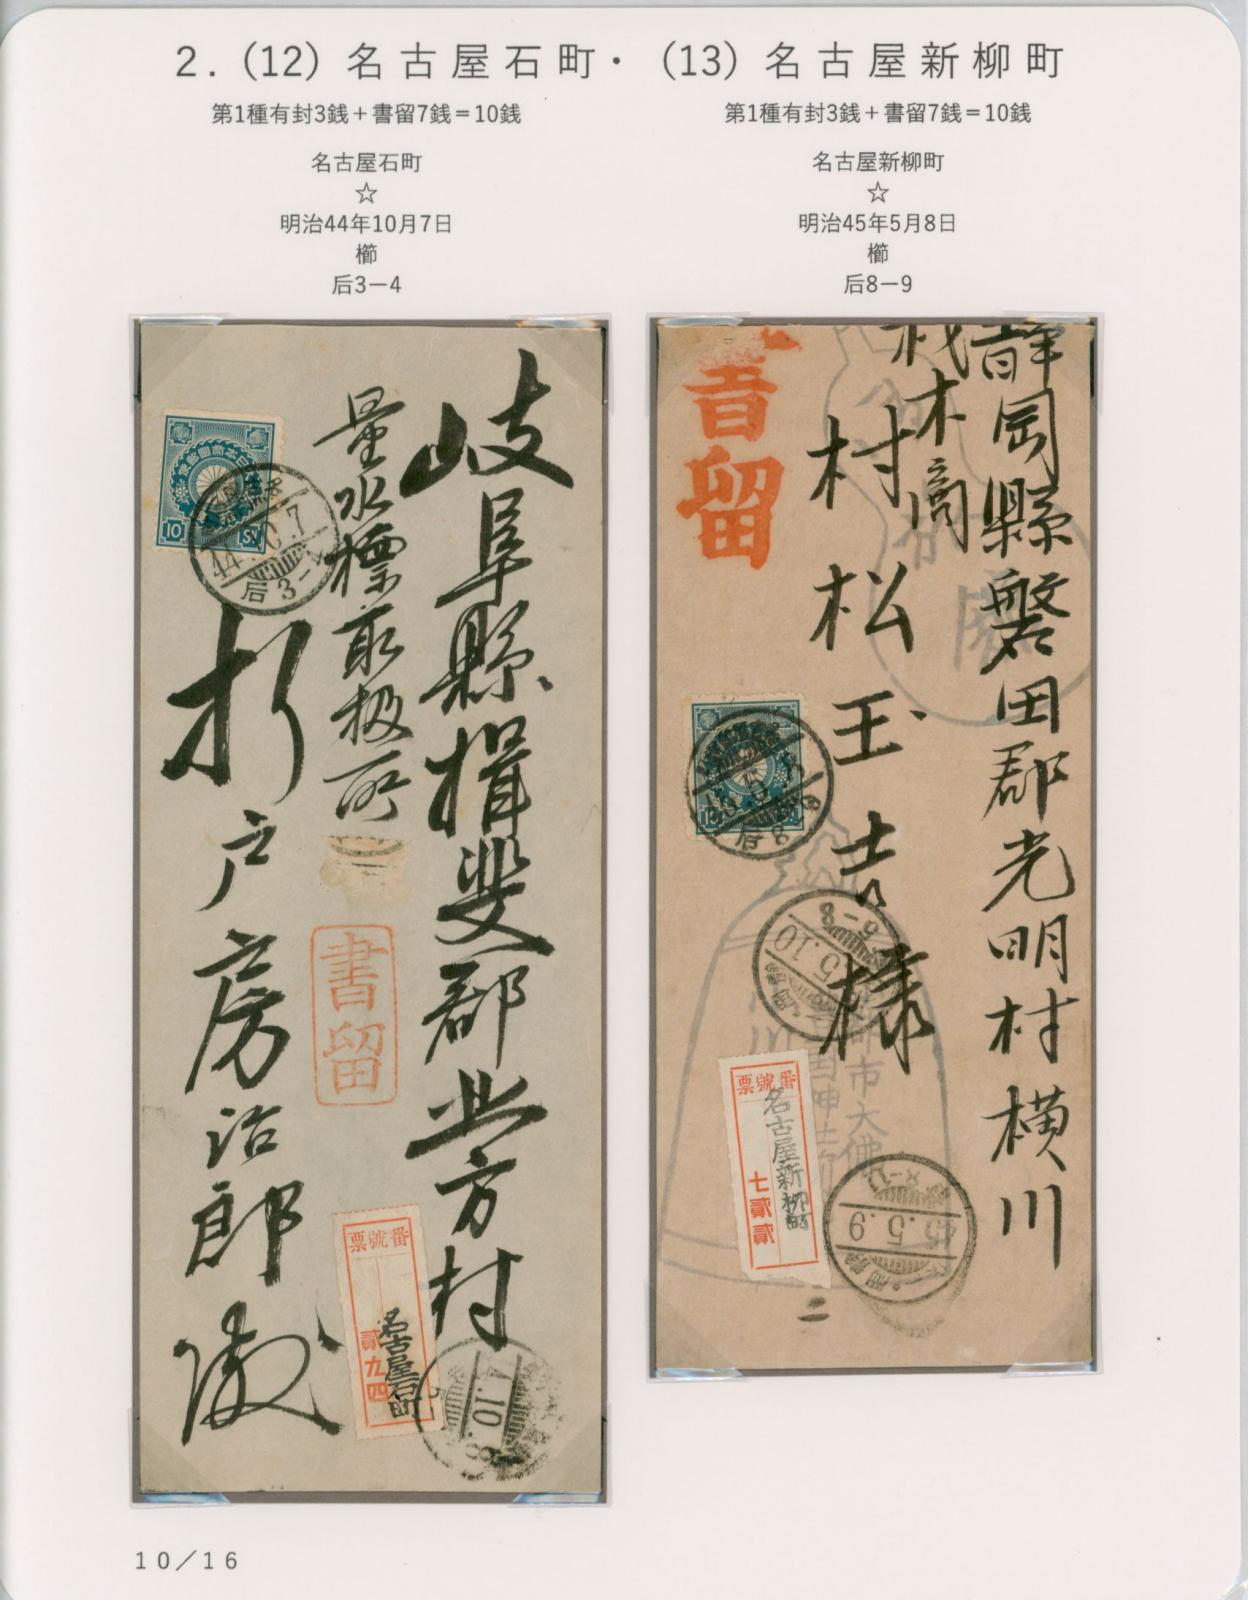 2. (12) 名古屋石町・ (13) 名古屋新柳町
第1種有封3銭＋書留7銭＝10銭
名古屋石町
☆
明治44年10月7日
櫛
后3－4
第1種有封3銭＋書留7銭＝10銭
名古屋新柳町
☆
明治45年5月8日
櫛
后8－9
岐阜縣揖斐郡北方村
量水標取扱所
杉戸房治郎
書留
10
SN
44.10.7
后3-4
番號票
名古屋石町
貳九四
10.8
静岡縣磐田郡光明村横川
木商
村松王吉様
書留
后8-9
5.10
番號票
名古屋新柳町
七貳貳
45.5.9
市大佛
二
10／16